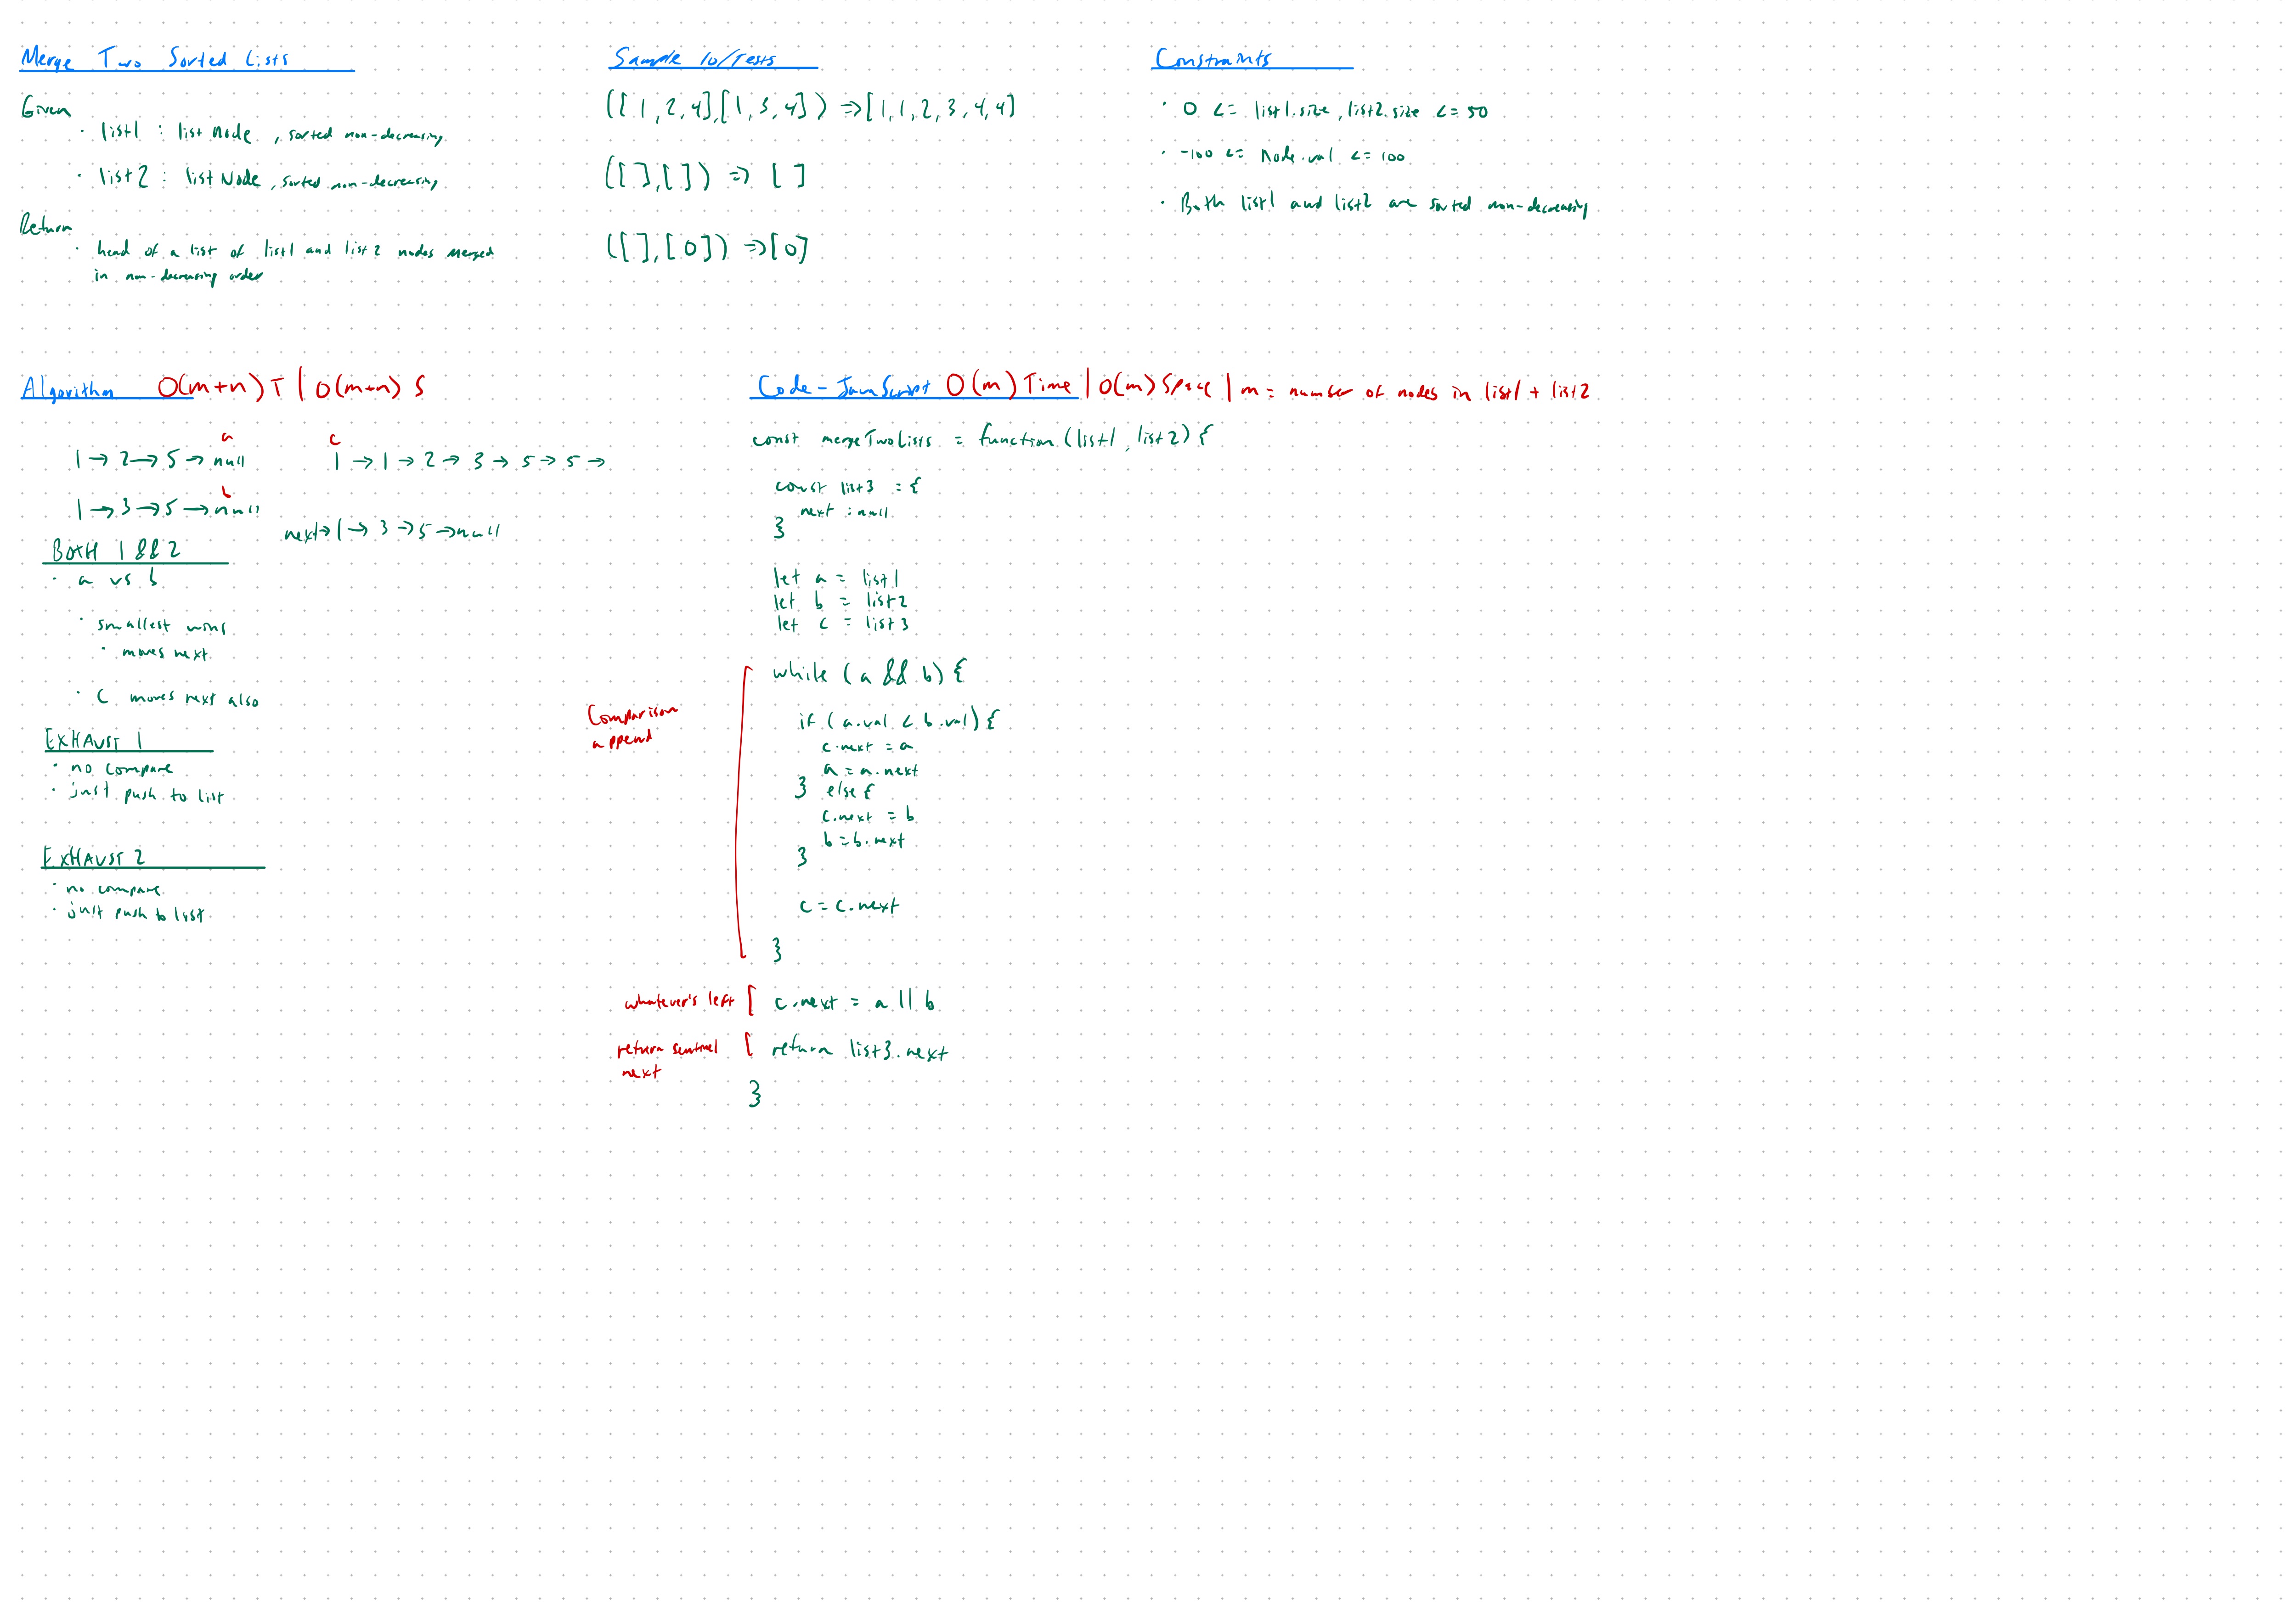 Merge Two Sorted Lists
Given
· list1 : list Node , sorted non-decreasing
· list2 : list Node , sorted non-decreasing
Return
· head of a list of list1 and list2 nodes merged
in non-decreasing order
Sample IO/Tests
([1,2,4],[1,3,4]) => [1,1,2,3,4,4]
([],[]) => []
([],[0]) => [0]
Constraints
· 0 <= list1.size, list2.size <= 50
· -100 <= Node.val <= 100
· Both list1 and list2 are sorted non-decreasing
Algorithm O(m+n) T | O(m+n) S
a
1 → 2 → 5 → null
b
1 → 3 → 5 → null
c
1 → 1 → 2 → 3 → 5 → 5 →
next → 1 → 3 → 5 → null
BOTH 1 && 2
· a vs b
· smallest wins
· moves next
· C moves next also
EXHAUST 1
· no compare
· just push to list
EXHAUST 2
· no compare
· just push to list
Code - JavaScript O(m) Time | O(m) Space | m = number of nodes in list1 + list2
const mergeTwoLists = function (list1, list2) {
const list3 = {
next : null
}
let a = list1
let b = list2
let c = list3
while (a && b) {
Comparison
append
if (a.val < b.val) {
c.next = a
a = a.next
} else {
c.next = b
b = b.next
}
c = c.next
}
whatever's left [ c.next = a || b
return sentinel [ return list3.next
next
}